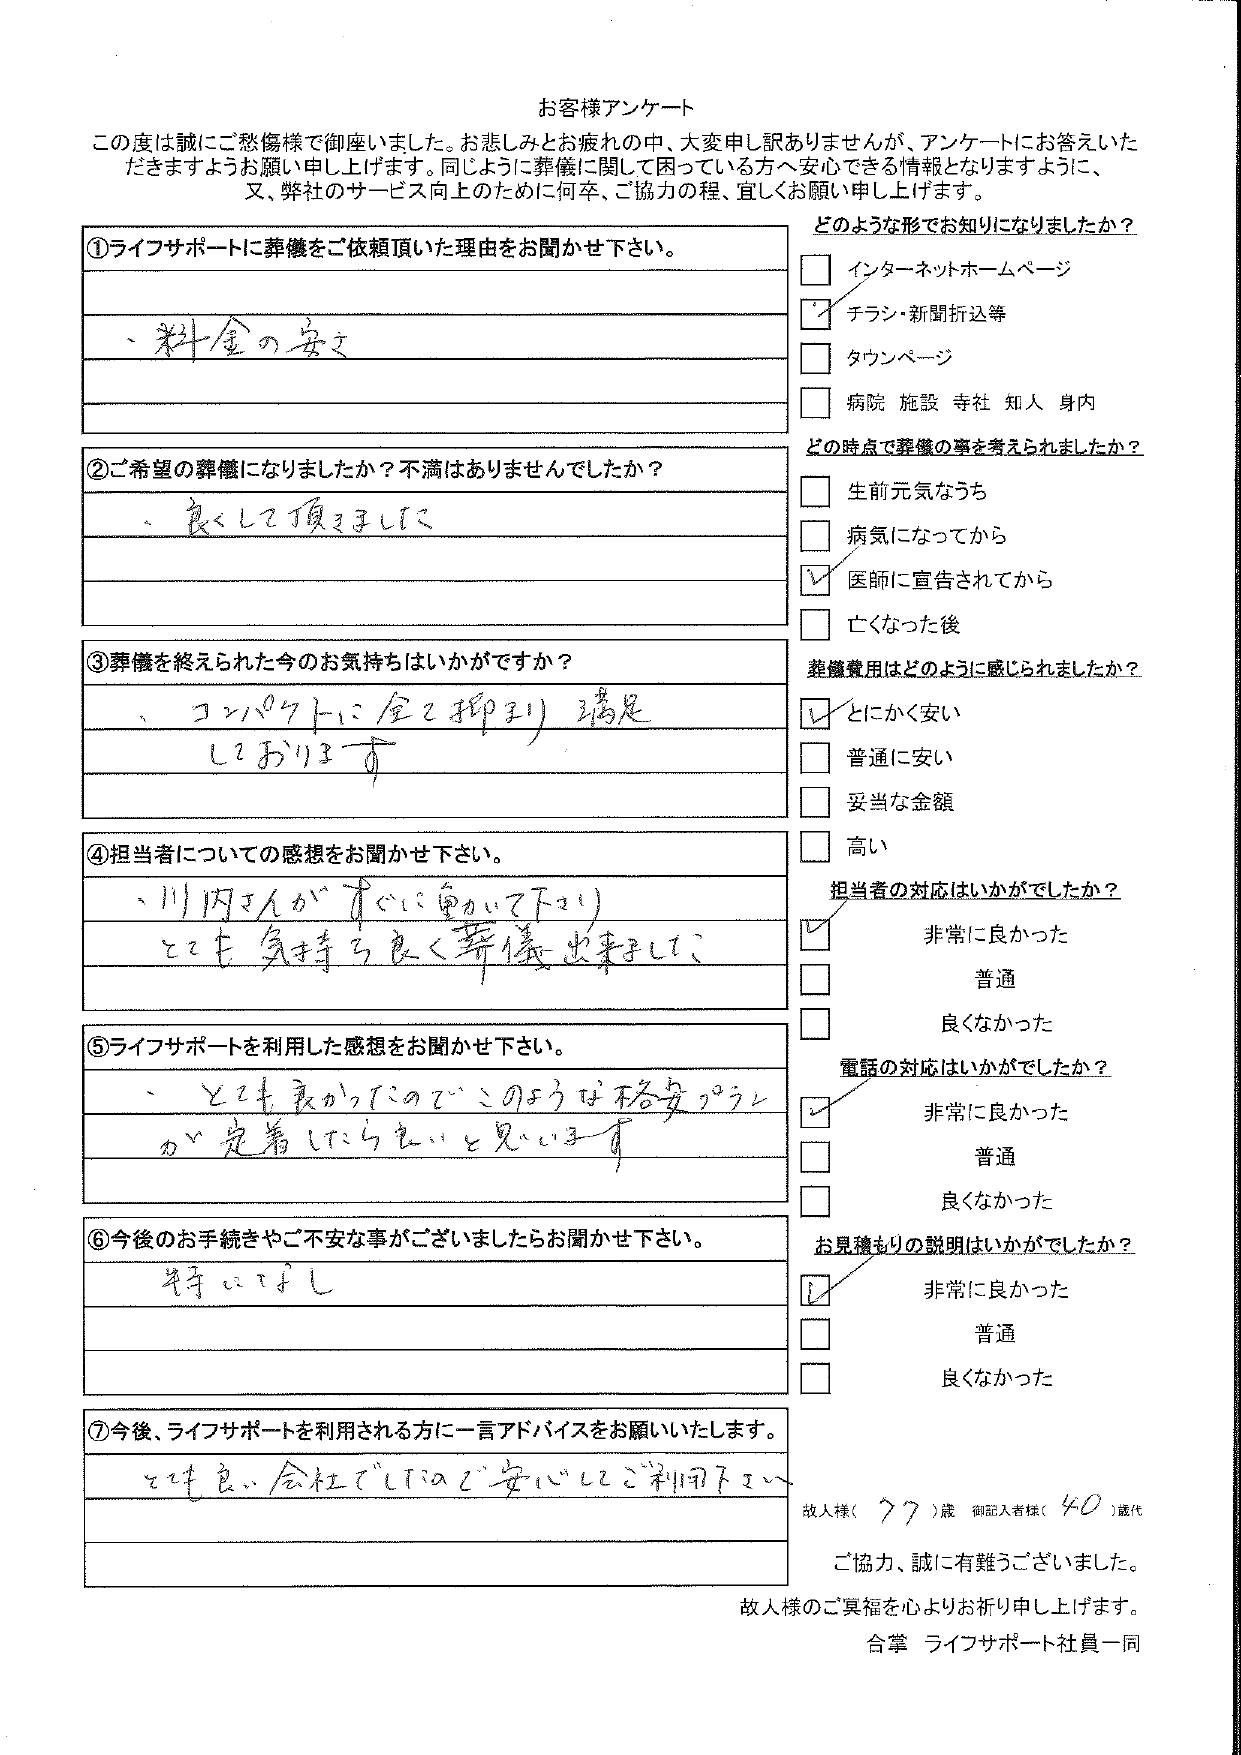 お客様アンケート
この度は誠にご愁傷様で御座いました。お悲しみとお疲れの中、大変申し訳ありませんが、アンケートにお答えいた
だきますようお願い申し上げます。同じように葬儀に関して困っている方へ安心できる情報となりますように、
又、弊社のサービス向上のために何卒、ご協力の程、宜しくお願い申し上げます。
①ライフサポートに葬儀をご依頼頂いた理由をお聞かせ下さい。
、料金の安さ
②ご希望の葬儀になりましたか？不満はありませんでしたか？
、良くして頂きました
③葬儀を終えられた今のお気持ちはいかがですか？
、コンパクトに全て抑まり満足
しております
④担当者についての感想をお聞かせ下さい。
、川内さんがすぐに動いて下さり
とても気持ち良く葬儀出来ました
⑤ライフサポートを利用した感想をお聞かせ下さい。
、とても良かったのでこのような格安プラン
が定着したら良いと思います
⑥今後のお手続きやご不安な事がございましたらお聞かせ下さい。
特になし
⑦今後、ライフサポートを利用される方に一言アドバイスをお願いいたします。
とても良い会社でしたので安心してご利用下さい
どのような形でお知りになりましたか？
インターネットホームページ
チラシ・新聞折込等
タウンページ
病院 施設 寺社 知人 身内
どの時点で葬儀の事を考えられましたか？
生前元気なうち
病気になってから
医師に宣告されてから
亡くなった後
葬儀費用はどのように感じられましたか？
とにかく安い
普通に安い
妥当な金額
高い
担当者の対応はいかがでしたか？
非常に良かった
普通
良くなかった
電話の対応はいかがでしたか？
非常に良かった
普通
良くなかった
お見積もりの説明はいかがでしたか？
非常に良かった
普通
良くなかった
故人様（ 77 ）歳 御記入者様（ 40 ）歳代
ご協力、誠に有難うございました。
故人様のご冥福を心よりお祈り申し上げます。
合掌 ライフサポート社員一同